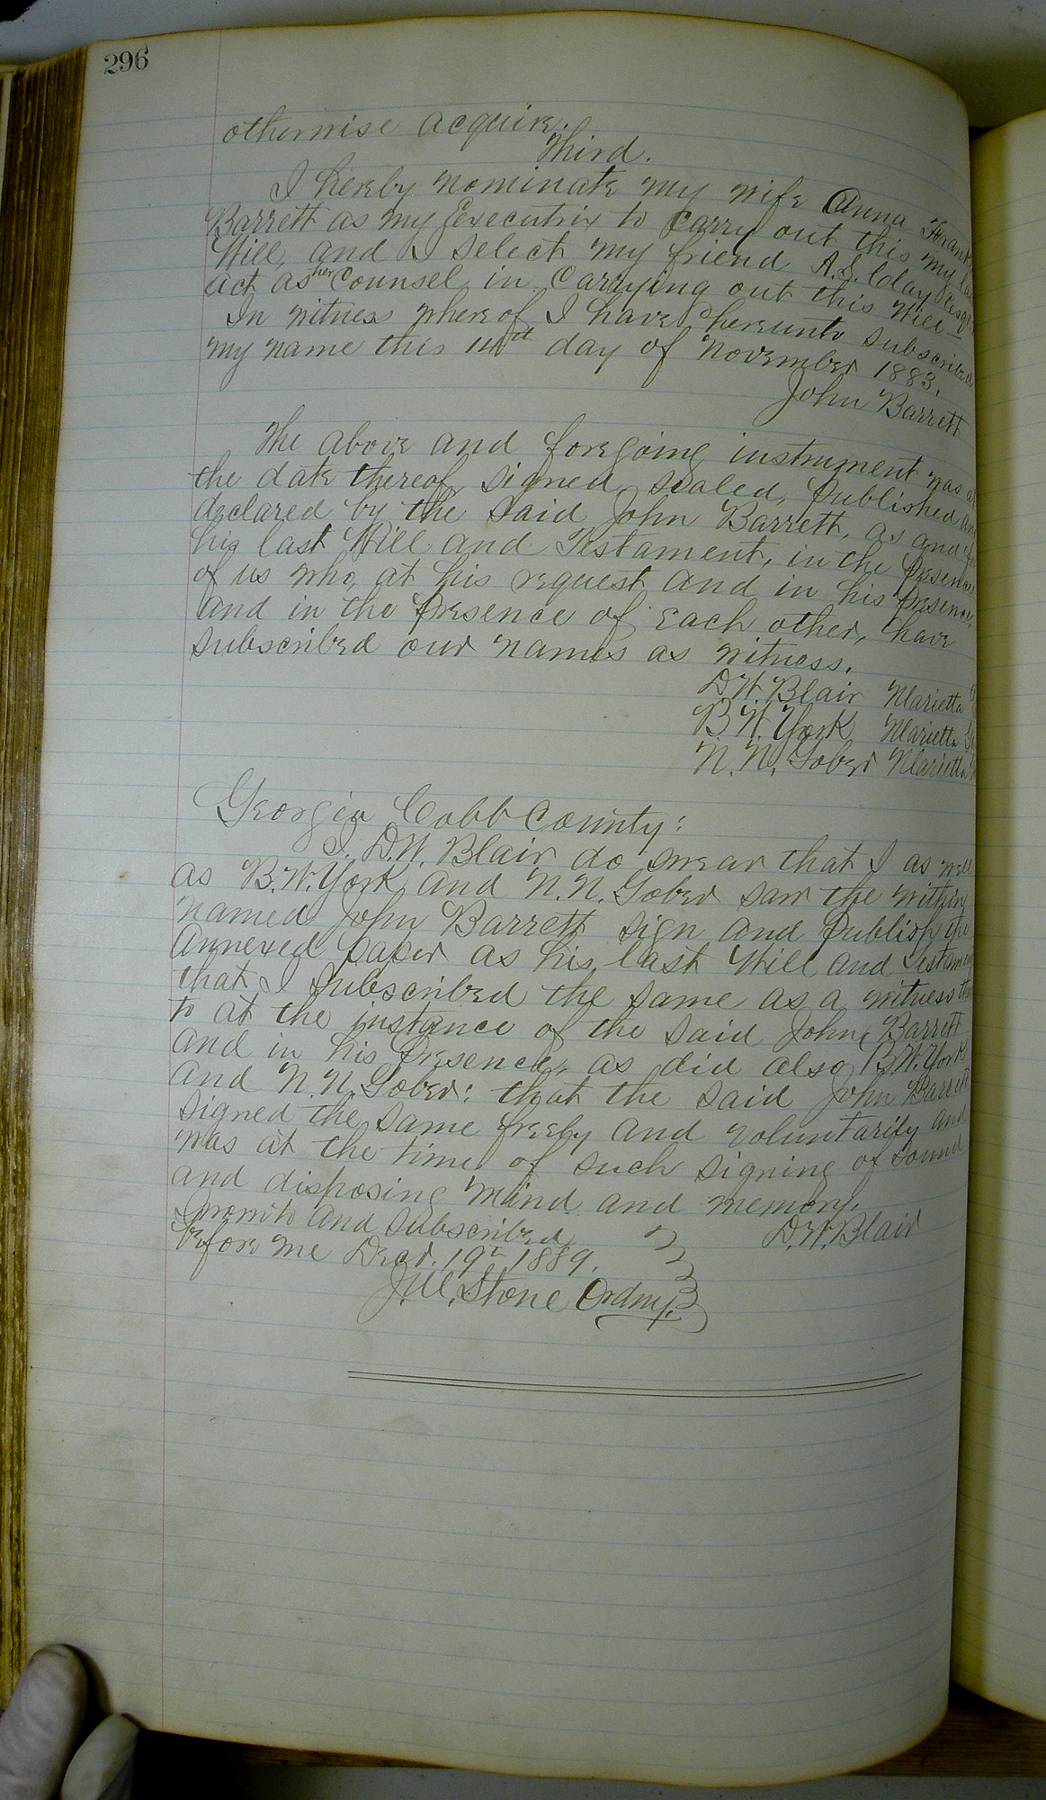 296
otherwise acquire.
Third.
I hereby nominate my wife Anna Frank
Barrett as my Executrix to carry out this my
Will, and I select my friend A. S. Clay Esqr
act as her Counsel in carrying out this Will
In witness whereof I have hereunto subscribed
my name this day of November 1883.
John Barrett
The above and foregoing instrument was
the date thereof signed, sealed, published
declared by the said John Barrett, as and
his last Will and Testament, in the presence
of us who, at his request and in his presence,
and in the presence of each other, have
subscribed our names as witness.
D.W. Blair Marietta
B.W. York Marietta
N.N. Gober Marietta
Georgia Cobb County:
I. D.W. Blair do swear that I as well
as B.W. York and N.N. Gober saw the within
named John Barrett sign and publish the
annexed paper as his last Will and Testament
that I subscribed the same as a witness
to at the instance of the said John Barrett
and in his presence, as did also B.W. York
and N.N. Gober: that the said John Barrett
signed the same freely and voluntarily and
was at the time of such signing of sound
and disposing mind and memory.
Sworn to and subscribed D.W. Blair
before me Decr. 19th 1889.
Stone Ordny.